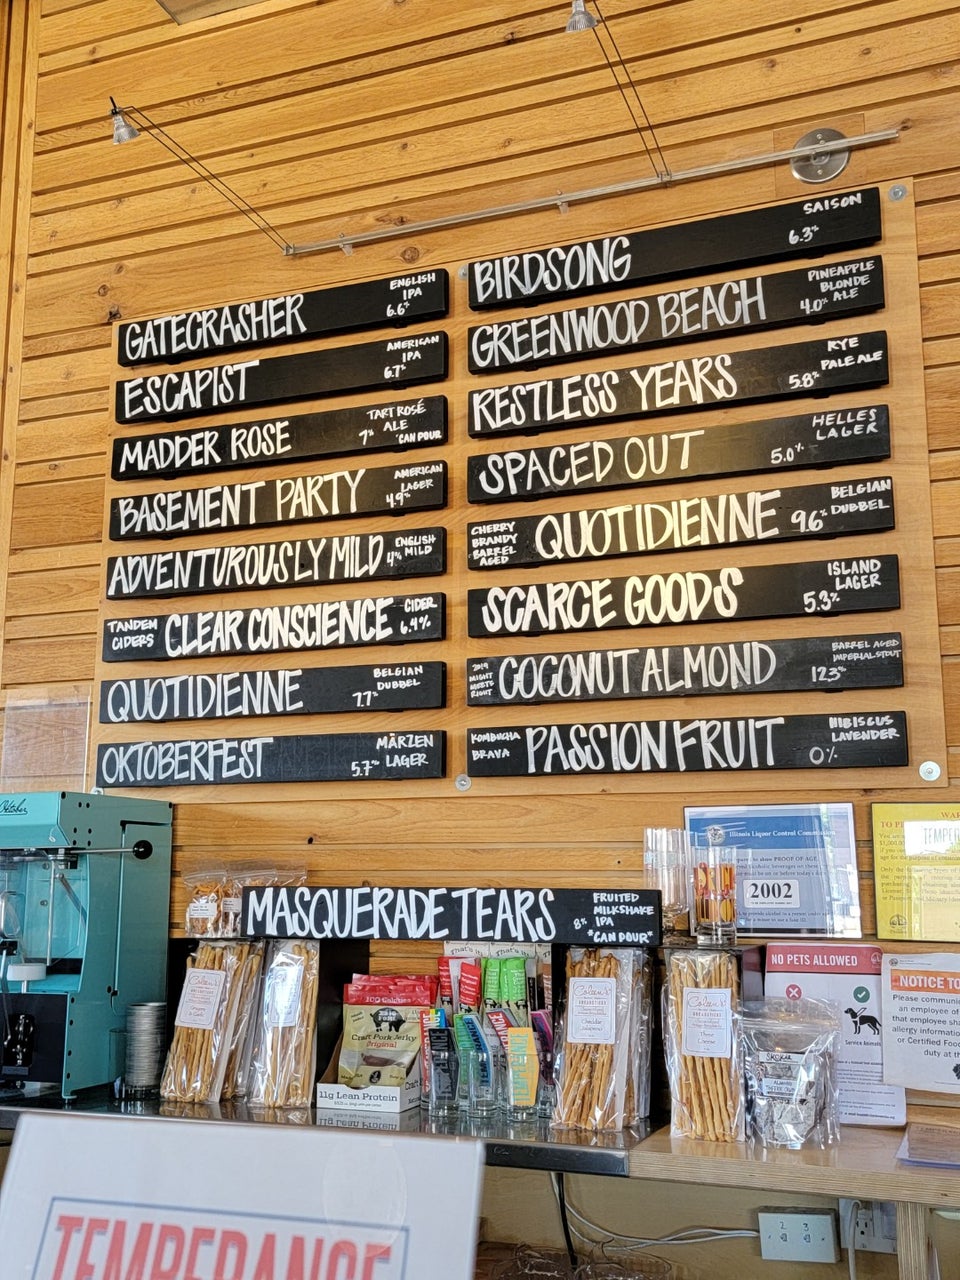 GATECRASHER
ENGLISH
IPA
6.6%
ESCAPIST
AMERICAN
IPA
6.7%
MADDER ROSE
TART ROSÉ
ALE
7%
*CAN POUR
BASEMENT PARTY
AMERICAN
LAGER
4.9%
ADVENTUROUSLY MILD
ENGLISH
MILD
4%
TANDEM
CIDERS
CLEAR CONSCIENCE
CIDER
6.4%
QUOTIDIENNE
BELGIAN
DUBBEL
7.7%
OKTOBERFEST
MÄRZEN
LAGER
5.7%
BIRDSONG
SAISON
6.3%
GREENWOOD BEACH
PINEAPPLE
BLONDE
ALE
4.0%
RESTLESS YEARS
RYE
PALE ALE
5.8%
SPACED OUT
HELLES
LAGER
5.0%
CHERRY
BRANDY
BARREL
AGED
QUOTIDIENNE
BELGIAN
DUBBEL
9.6%
SCARCE GOODS
ISLAND
LAGER
5.3%
2019
MIGHT
MEETS
RIGHT
COCONUT ALMOND
BARREL AGED
IMPERIAL STOUT
12.3%
KOMBUCHA
BRAVA
PASSION FRUIT
HIBISCUS
LAVENDER
0%
MASQUERADE TEARS
8%
FRUITED
MILKSHAKE
IPA
*CAN POUR*
Illinois Liquor Control Commission
PROOF OF AGE
2002
NO PETS ALLOWED
Service Animals
NOTICE TO
Please communi
an employee of
that employee sha
allergy information
or Certified Food
duty at th
Craft Pork Jerky
Original
11g Lean Protein
That's it.
Coleen's
BREADSTICKS
Coleen's
Cheddar
Jalapeño
Coleen's
Three
Cheese
SKOKIE
TEMPERANCE
2 3